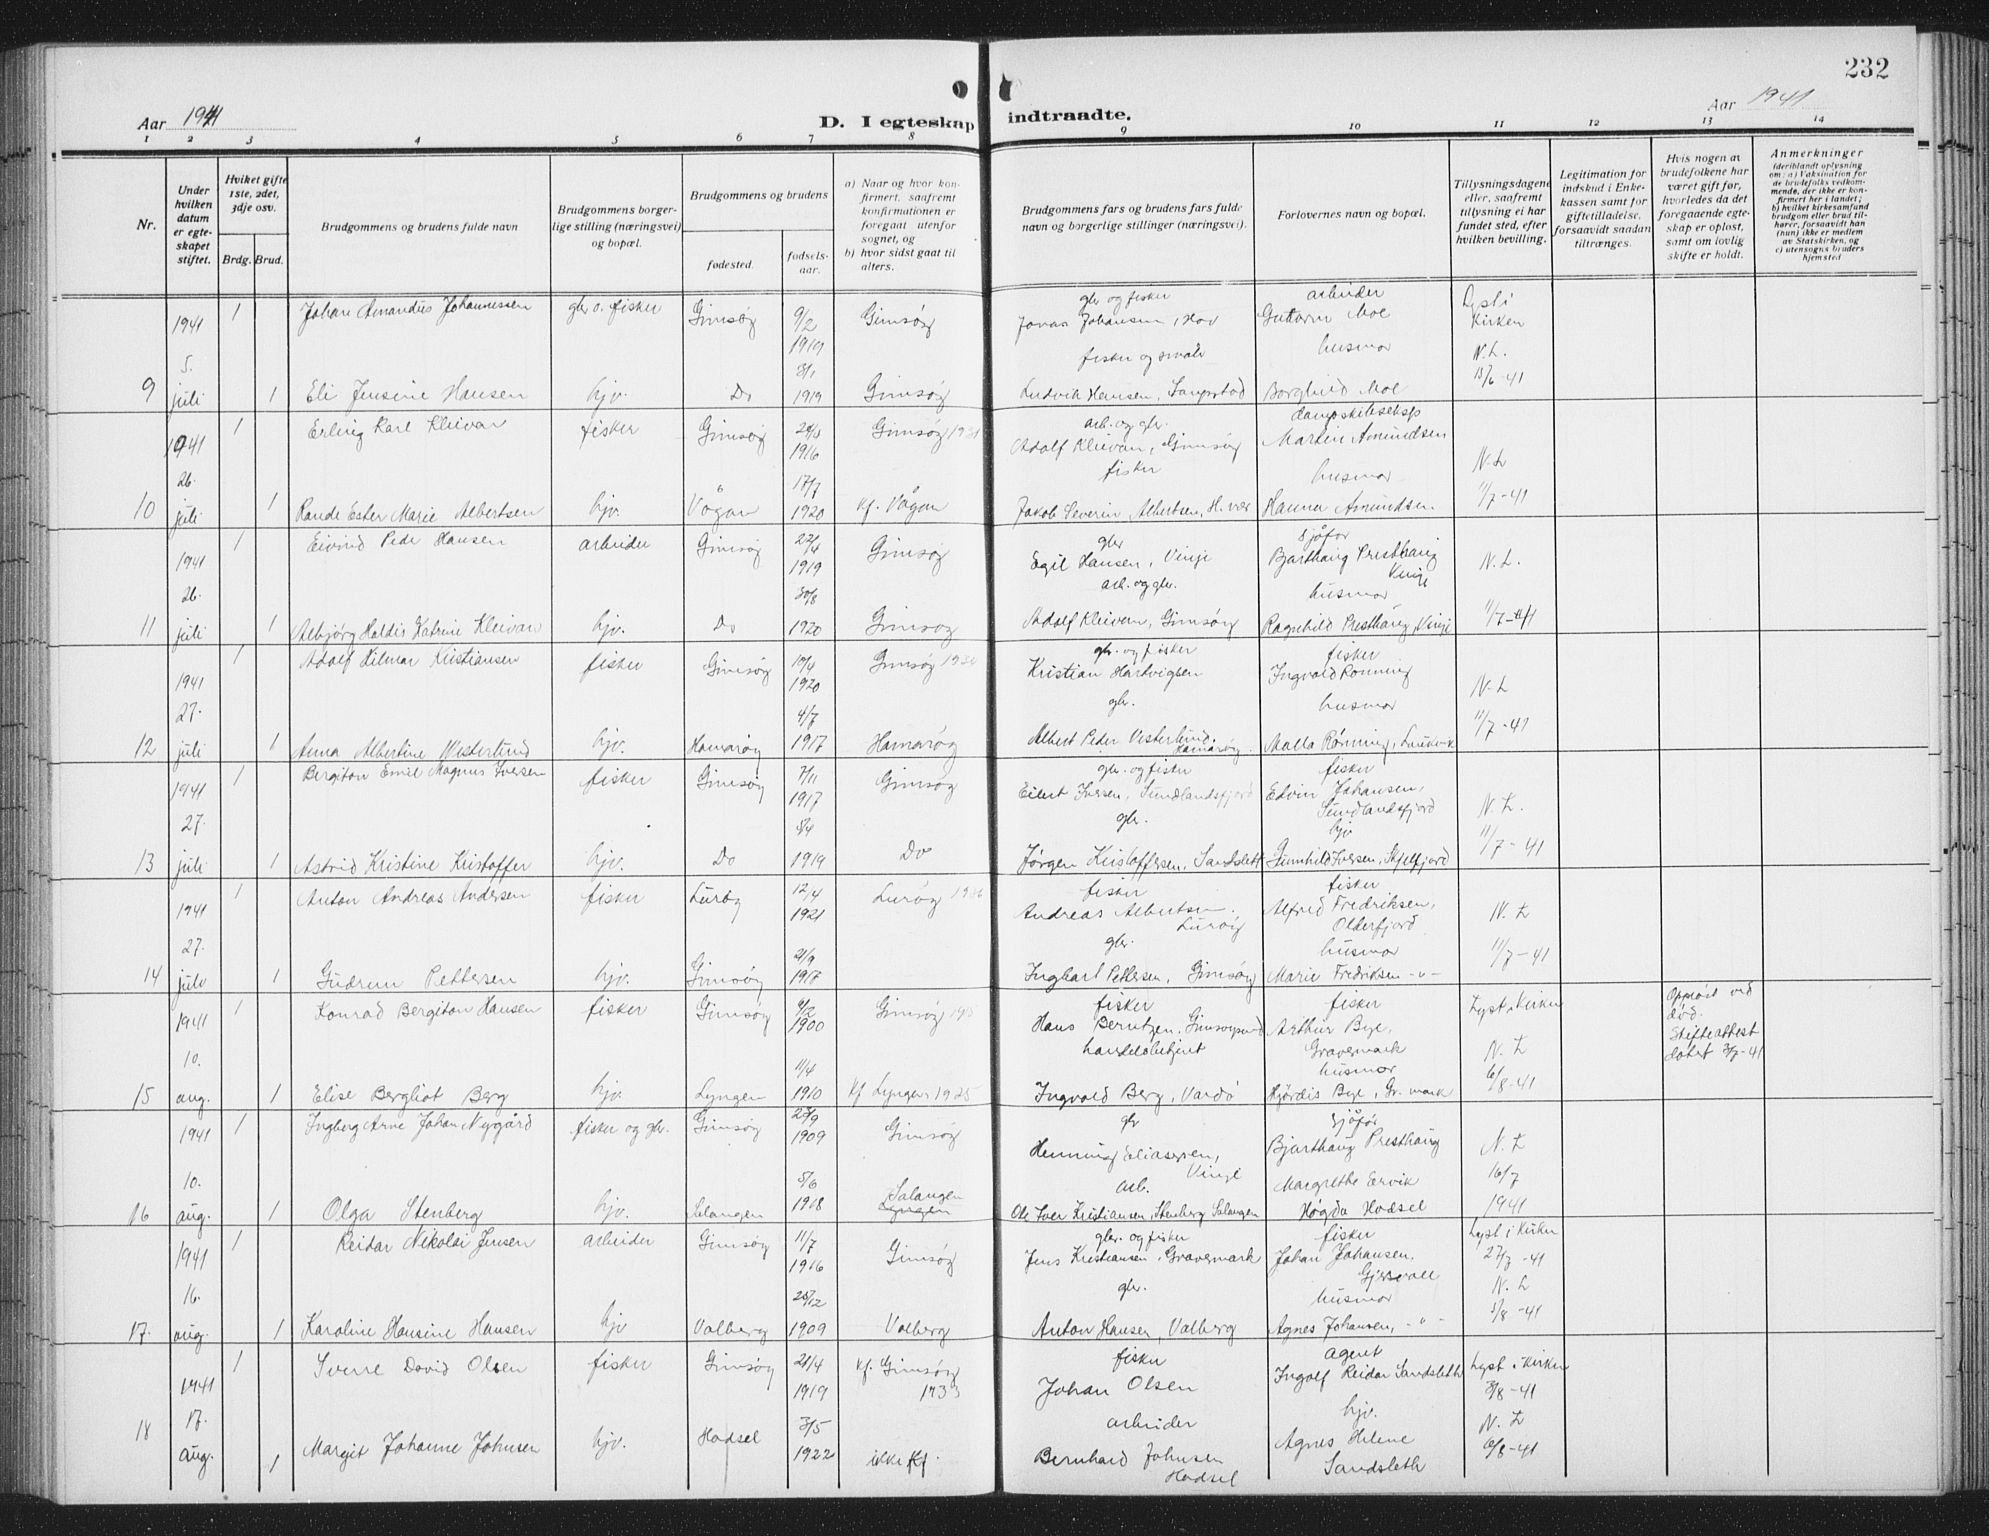 232
Aar 1941
D. I egteskap indtraadte.
Aar 1941
1 2 3 4 5 6 7 8 9 10 11 12 13 14
Nr.
Under hvilken datum er egteskapet stiftet.
Hviket gifte 1ste, 2det, 3dje osv.
Brdg. Brud.
Brudgommens og brudens fulde navn
Brudgommens borgerlige stilling (næringsvei) og bopæl.
Brudgommens og brudens
fødested.
fødselsaar.
a) Naar og hvor konfirmert, saafremt konfirmationen er foregaat utenfor sognet, og
b) hvor sidst gaat til alters.
Brudgommens fars og brudens fars fulde navn og borgerlige stillinger (næringsvei).
Forlovernes navn og bopæl.
Tillysningsdagene eller, saafremt tillysning ei har fundet sted, efter hvilken bevilling.
Legitimation for indskud i Enkekassen samt for giftetilladelse, forsaavidt saadan tiltrænges.
Hvis nogen av brudefolkene har været gift før, hvorledes da det foregaaende egteskap er opløst, samt om lovlig skifte er holdt.
Anmerkninger
(deriblandt oplysning om: a) Vaksination for de brudefolks vedkommende, der ikke er konfirmert her i landet; b) hvilket kirkesamfund brudgom eller brud tilhører, forsaavidt han (hun) ikke er medlem av Statskirken, og c) utensogns bruders hjemsted
9 1941 5. juli
1 Johan Amandus Johannessen gbr o. fisker Gimsøy 9/2 1919 Gimsøy
gbr og fisker Jonas Johansen, Hov
arbeider Guttorm Moe
Lyst i Kirken
1 Eli Jensine Hansen hjv. Do 1919 Gimsøy
fisker og smaabr Ludvik Hansen,
husmor Borghild Moe
N.L. 13/6-41
10 1941 26. juli
1 Erling Karl Kleivan fisker Gimsøy 1916 Gimsøy 1931
arb. og gbr. Adolf Kleivan, Gimsøy
Martin Amundsen
N.L 11/7-41
1 Rande Ester Marie Albertsen hjv. Vågan 17/7 1920 kf. Vågan
fisker Jakob Severin Albertsen, H.vær
husmor Hanna Amundsen.
11 1941 26. juli
1 Eivind Peder Hansen arbeider Gimsøy 22/4 1919 Gimsøy
gbr Egil Hansen, Vinje
sjåfør Bjarthaug Presthaug Vinje
N.L. 11/7-41
1 Aslbjørg Haldis Katrine Kleivan hjv. Do 30/8 1920 Gimsøy
arb. og gbr. Adolf Kleivan, Gimsøy
husmor Ragnhild Presthaug, Vinje
12 1941 27. juli
1 Adolf Hilmar Kristiansen fisker Gimsøy 19/4 1920 Gimsøy
gbr. og fisker Kristian Hartvigsen
fisker Ingvald Rønning
N.L 11/7-41
1 Anna Albertine Westerlund hjv. Hamarøy 4/7 1917 Hamarøy
gbr. Albert Peder Vesterlund, Hamarøy.
husmor Malla Rønning, Laukvik
13 1941 27. juli
1 Bergiton Emil Magnus Iversen fisker Gimsøy 7/11 1917 Gimsøy
gbr. og fisker Eilert Iversen, Sundlandsfjord
fisker Edvin Johansen, Sundlandsfjord
N.L. 11/7-41
1 Astrid Kristine Kristoffer hjv. Do 1919 Do
gbr. Jørgen Kristoffersen, Sandslett
hjv Gunnhild Iversen, Skjelfjord
14 1941 27. juli
1 Anton Andreas Andersen fisker Lurøy 12/4 1921 Lurøy 1936
fisker Andreas Albertsen. Lurøy
fisker Alfred Fredriksen, Olderfjord
N.L 11/7-41
1 Gudrun Pettersen hjv. Gimsøy 21/9 1917
gbr. Ingbart Pettersen, Gimsøy
husmor Marie Fredriksen -"-
15 1941 10. aug.
1 Konrad Bergiton Hansen fisker Gimsøy 1900 Gimsøy
fisker Hans Berntzen, Gimsøysand
fisker Arthur Bye, Gravermark
Lyst i Kirken N.L 6/8-41
Oppløst ved død. Skifteattest datert 3/7-41
1 Elise Bergliot Berg hjv. Lyngen 11/4 1910 kf Lyngen 1925
handelsbetjent Ingvald Berg, Vardø
husmor Hjørdis Bye, Gr.mark
16 1941 10. aug.
1 Ingberg Arne Johan Nygård fisker og gbr. Gimsøy 1909 Gimsøy
gbr Henning Eliassen, Vinje
sjåfør Bjarthaug Presthaug
N.L 16/7 1941
1 Olga Stenberg hjv. Salangen 5/6 1918 Salangen
arb. Ole Iver Kristiansen, Stenberg Salangen
Margrethe Ervik Høgda Hadsel
17. 1941 16. aug.
1 Reidar Nikolai Jensen arbeider Gimsøy 11/7 1916 Gimsøy
gbr. og fisker Jens Kristiansen, Gravermark
fisker Johan Johansen, Gjersvall
Lyst i Kirken 27/7-41 N.L 5/8-41
1 Karoline Hansine Hansen hjv Valberg 25/12 1909 Valberg
gbr. Anton Hansen, Valberg
husmor Agnes Johansen, -"-
18 1941 17. aug.
1 Sverre David Olsen fisker Gimsøy 21/4 1919 kf. Gimsøy 1933
fisker Johan Olsen
agent Ingolf Reidar Sandsleth
Lyst i kirken 3/8-41
1 Margit Johanne Johnsen hjv. Hadsel 3/5 1922 ikke kf.
arbeider Bernhard Johnsen Hadsel
hjv. Agnes Helene Sandsleth
N.L 6/8-41